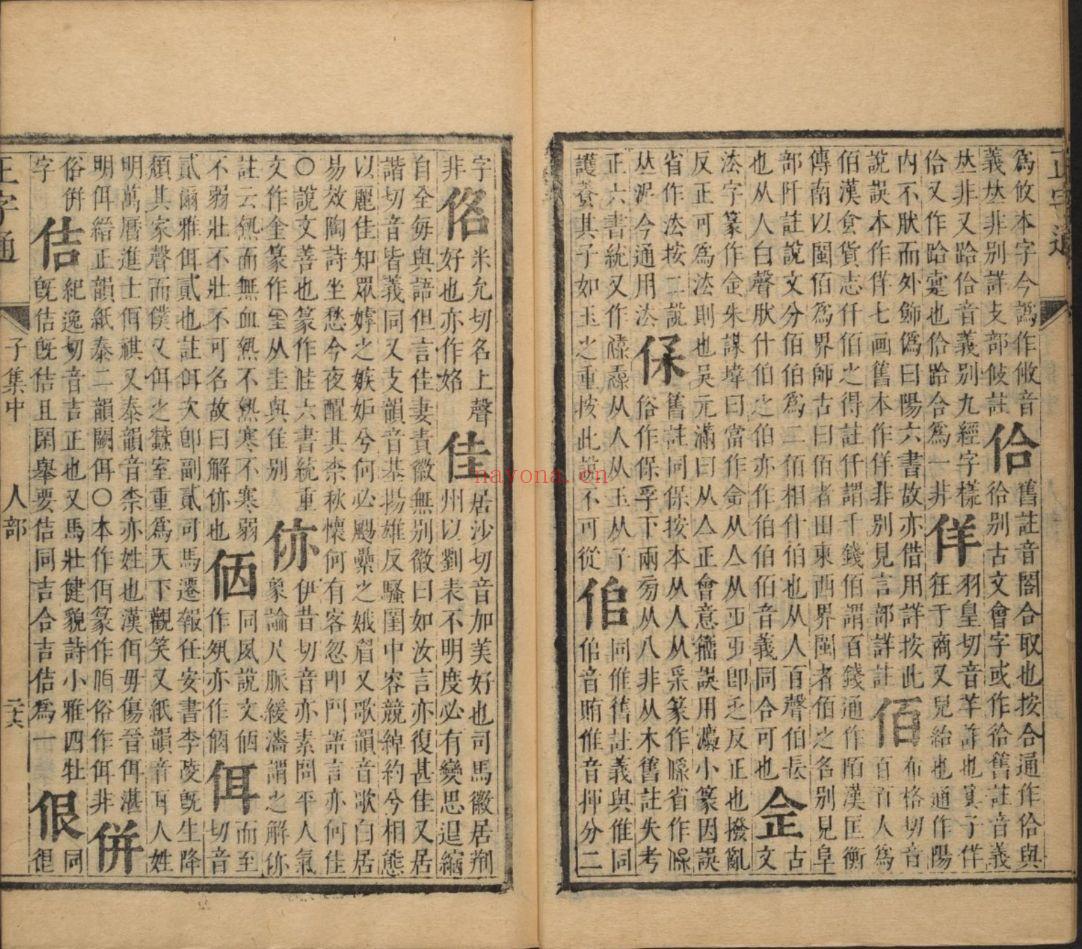 正字通
爲攸本字今譌作攸音
義𠀤非別詳支部攸註
佮
舊註音閤合取也按合通作佮與
佮別古文會字或作佮舊註音義
𠀤非又跲佮音義別九經字樣
佯
羽皇切音羊詐也莫子佯
佮又作跲疐也佮跲合爲一非
狂于商又兒紿也通作陽
內不肰而外飾僞曰陽六書故亦借用詳按此
說誤本作佯七画舊本作佯非別見言部詳註
佰
布格切音
百百人爲
佰漢倉貨志仟佰之得註仟謂千錢佰謂百錢通作陌漢匡衡
傳南以閩佰爲界師古曰佰者田東西界閩者佰之名別見阜
部阡註說文分佰佰爲二佰相什佰也从人百聲佰長古
也从人白聲肰什伯之伯亦作佰伯佰音義同合可也
佱
文
法字篆作金朱謀㙔曰當作金从亼从
反正可爲法則也吳元滿曰从亼正會意籀誤用灋小篆因誤
省作法按二說
𠀤泥今通用法
保
舊註同保按本从人从采篆作保省作保
俗作保孚下兩旁从八非从木舊註失考
正六書統又作保𠈃从人从玉从子
護養其子如玉之重按此𠀤不可從
㑑
同惟舊註義與惟同
音賄惟音揮分二
字
非
佲
米允切名上聲
好也亦作姳
佳
居沙切音加美好也司馬徽居荊
州以劉表不明度必有變思退縮
自全每與語但言佳妻責徽無別徽曰如汝言亦復甚佳又居
諧切音皆義同又支韻音基揚雄反騷閨中容競綽約兮相態
以麗佳知眾嫭之嫉妒兮何必颺纍之娥眉又歌韻音歌白居
易效陶詩坐愁今夜醒其柰秋懷何有客忽叩門語言亦何佳
○說文善也篆作佳六書統重
文作奎篆作𡉚从圭與佳別
㑊
伊昔切音亦素問平人氣
象論尺脈緩濇謂之解㑊
註云熱而無血熱不熱寒不寒弱
不弱壯不壯不可名故曰解㑊也
㑂
同夙說文㑂
作夙亦作㑂
佴
而至
切音
貳爾雅佴貳也註佴次卽副貳可馬遷報任安書李陵旣生降
頹其家聲而僕又佴之蠶室重爲天下觀笑又紙韻音耳人姓
明萬曆進士佴祺又泰韻音柰亦姓也漢佴毋傷晉佴湛
明佴給正韻紙泰二韻闕佴○本作佴篆作佴俗作佴非
倂
俗倂
字
佶
旣佶旣佶且閑舉要佶同吉合吉佶爲一
紀逸切音吉正也又馬壯健貌詩小雅四牡
佷
同
很
正字通
子集中
人部
二六
nayona.cn